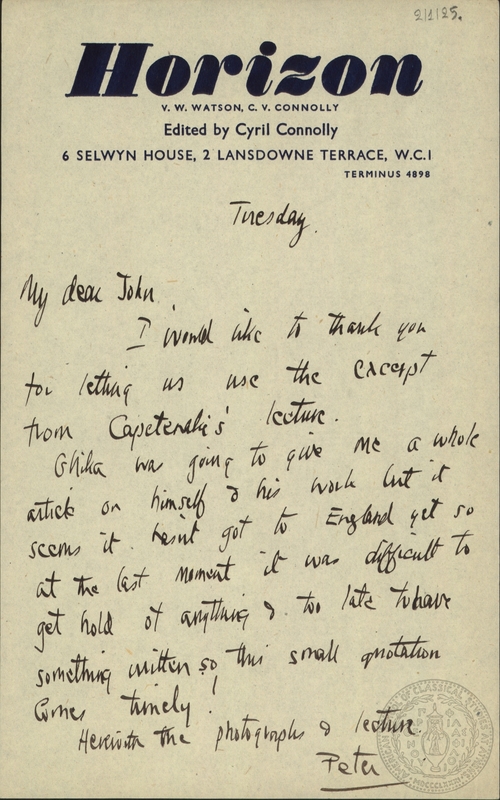 2/1/25.
Horizon
V. W. WATSON, C. V. CONNOLLY
Edited by Cyril Connolly
6 SELWYN HOUSE, 2 LANSDOWNE TERRACE, W.C.1
TERMINUS 4898
Tuesday.
My dear John,
I would like to thank you
for letting us use the excerpt
from Capetanakis' lecture.
Ghika was going to give me a whole
article on himself & his work but it
seems it hasn't got to England yet so
at the last moment it was difficult to
get hold of anything & too late to have
something written so this small quotation
comes timely!
Herewith the photographs & lecture.
Peter